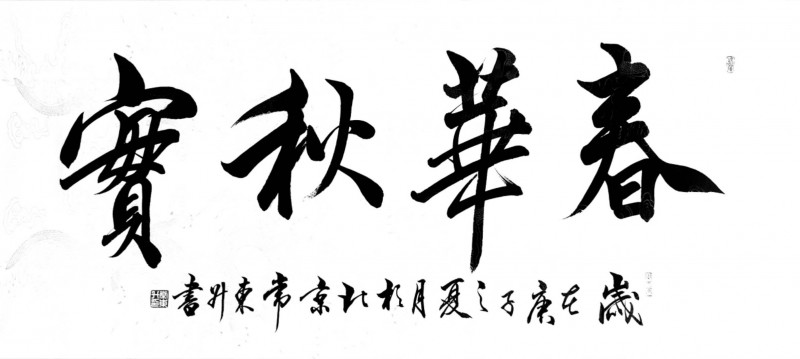 春華秋實
歲在庚子之夏月於北京常東昇書